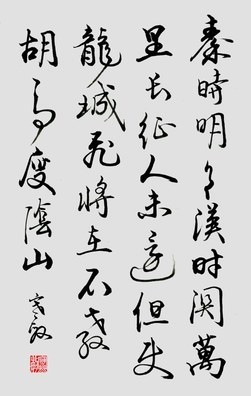 秦時明月漢時關萬
里長征人未還但使
龍城飛將在不教
胡馬度陰山